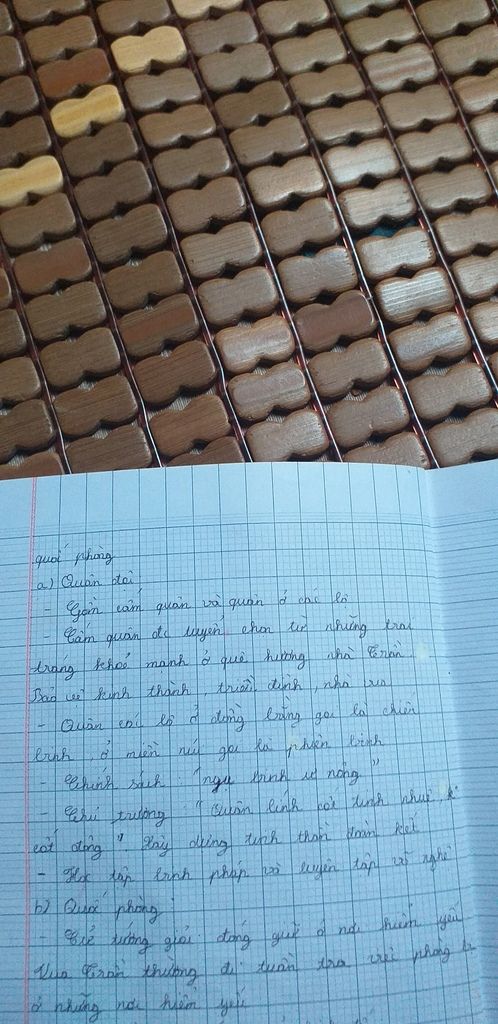 quốc phòng
a) Quân đội
- Gồm cấm quân và quân ở các lộ
- Cấm quân đc tuyển chọn từ những trai
tráng khoẻ mạnh ở quê hương nhà Trần
Bảo vệ kinh thành, triều đình, nhà vua
- Quân các lộ ở đồng bằng gọi là chính
binh, ở miền núi gọi là phiên binh
- Chính sách: "ngụ binh ư nông"
- Chủ trương: "Quân lính cốt tinh nhuệ, k
cốt đông". Xây dựng tinh thần đoàn kết
- Học tập binh pháp và luyện tập võ nghệ
b) Quốc phòng:
- Cử tướng giỏi đóng giữ ở nơi hiểm yếu
Vua Trần thường đi tuần tra việc phòng
ở những nơi hiểm yếu